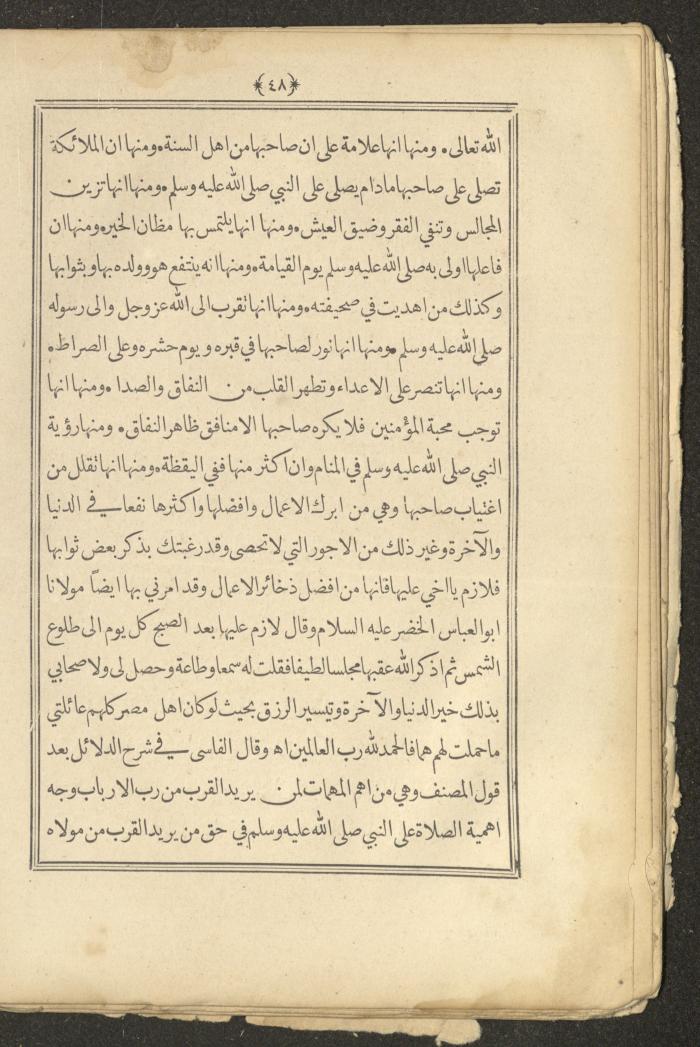 ﴿٤٨﴾
الله تعالى • ومنها انها علامة على ان صاحبها من اهل السنة • ومنها ان الملائكة
تصلى على صاحبها مادام يصلى على النبي صلى الله عليه وسلم • ومنها انها تزين
المجالس وتنفي الفقر وضيق العيش • ومنها انها يلتمس بها مظان الخير • ومنها ان
فاعلها اولى به صلى الله عليه وسلم يوم القيامة • ومنها انه ينتفع هو وولده بها وبثوابها
وكذلك من اهديت في صحيفته • ومنها انها تقرب الى الله عز وجل والى رسوله
صلى الله عليه وسلم • ومنها انها نور لصاحبها في قبره ويوم حشره وعلى الصراط •
ومنها انها تنصر على الاعداء وتطهر القلب من النفاق والصدا • ومنها انها
توجب محبة المؤمنين فلا يكره صاحبها الا منافق ظاهر النفاق • ومنها رؤية
النبي صلى الله عليه وسلم في المنام وان اكثر منها ففي اليقظة • ومنها انها تقلل من
اغتياب صاحبها وهي من ابرك الاعمال وافضلها واكثرها نفعا في الدنيا
والآخرة وغير ذلك من الاجور التي لا تحصى وقد رغبتك بذكر بعض ثوابها
فلازم يا اخي عليها فانها من افضل ذخائر الاعمال وقد امرني بها ايضاً مولانا
ابو العباس الخضر عليه السلام وقال لازم عليها بعد الصبح كل يوم الى طلوع
الشمس ثم اذكر الله عقبها مجلسا لطيفا فقلت له سمعا وطاعة وحصل لى ولاصحابي
بذلك خير الدنيا والآخرة وتيسير الرزق بحيث لو كان اهل مصر كلهم عائلتي
ما حملت لهم هما فالحمد لله رب العالمين اه وقال الفاسى في شرح الدلائل بعد
قول المصنف وهي من اهم المهمات لمن يريد القرب من رب الارباب وجه
اهمية الصلاة على النبي صلى الله عليه وسلم في حق من يريد القرب من مولاه